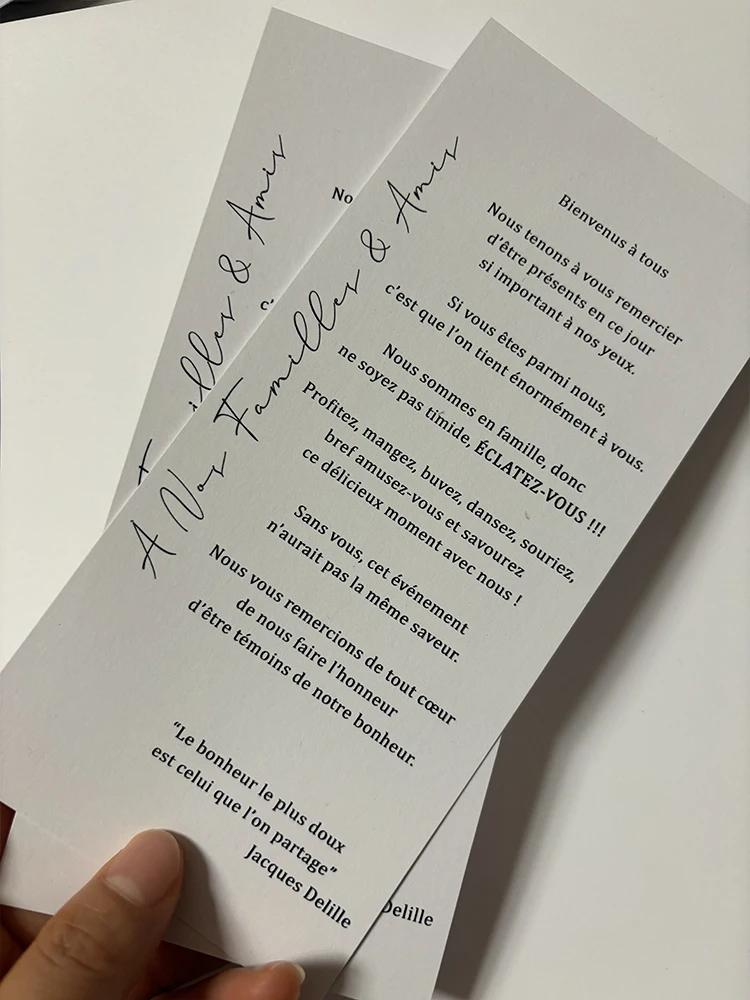 À Nos Familles & Amis
Bienvenus à tous
Nous tenons à vous remercier
d'être présents en ce jour
si important à nos yeux.
Si vous êtes parmi nous,
c'est que l'on tient énormément à vous.
Nous sommes en famille, donc
ne soyez pas timide, ÉCLATEZ-VOUS !!!
Profitez, mangez, buvez, dansez, souriez,
bref amusez-vous et savourez
ce délicieux moment avec nous !
Sans vous, cet événement
n'aurait pas la même saveur.
Nous vous remercions de tout cœur
de nous faire l'honneur
d'être témoins de notre bonheur.
“Le bonheur le plus doux
est celui que l'on partage”
Jacques Delille
illes & Amis
No
c'
Delille